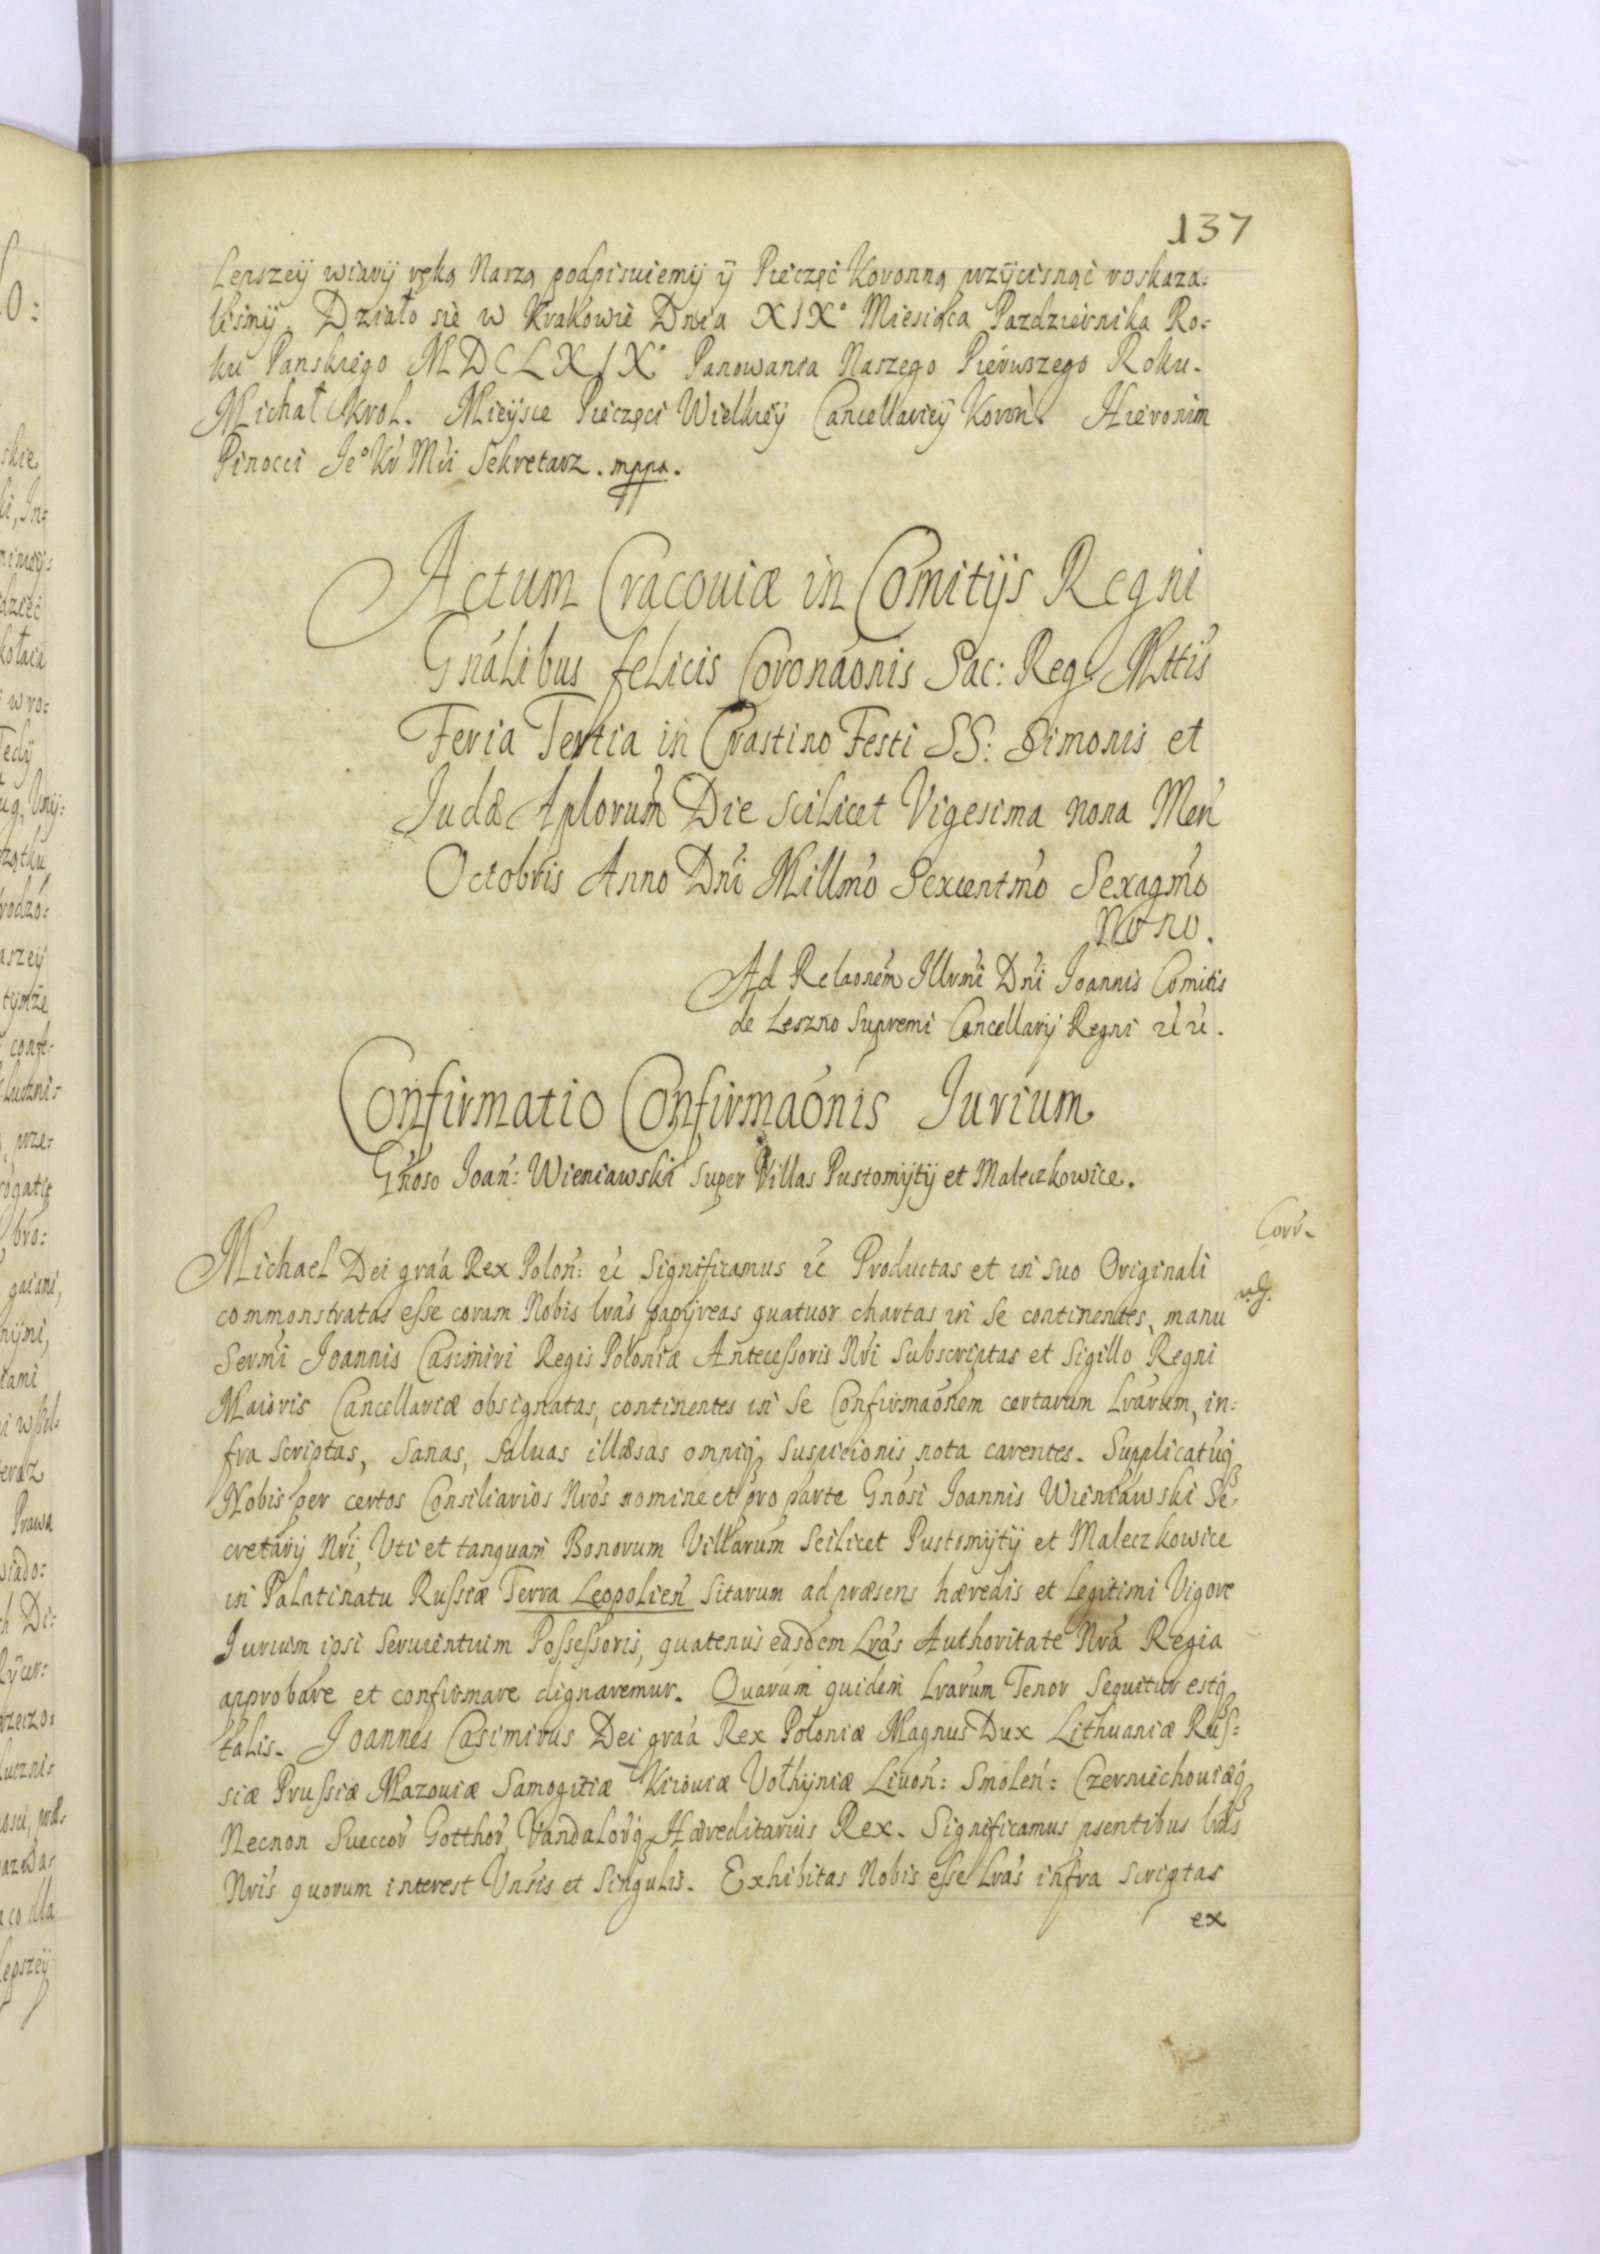 137
Lepszeÿ wiarÿ ręką Naszą podpisuiemÿ ÿ Pieczęć Koronną przÿcisnąć roskaza:
liśmÿ. Działo się w Krakowie Dnia XIX° Miesiąca Pazdziernika Ro:
ku Panskiego MDCLXIX° Panowania Naszego Pierwszego Roku.
Michał Krol. Mieÿsce Pieczęci Wielkieÿ Cancellarieÿ Koroń. Hieronim
Pinocci Je° Kr Mći Sekretarz. mppa.
Actum Cracouiæ in Comitijs Regni
Gńalibus felicis Coronaónis Sac: Reg: Mttis
Feria Tertia in Crastino Festi SS: Simonis et
Judæ Aplorum Die scilicet Vigesima nona Meń
Octobris Anno Dńi Millmó Sexcentmó Sexagmó
Nono.
Ad Relaoném Illrmi Dńi Joannis Comitis
de Leszno Supremi Cancellarij Regni ꝛc ꝛc.
Confirmatio Confirmaónis Jurium
Gńoso Joań: Wieniawski super Villas Pustomÿtÿ et Maleczkowice.
Corr.
Michael Dei graá Rex Poloń: ꝛc Significamus ꝛc Productas et in suo Originali
commonstratas esse coram Nobis lrás papÿreas quatuor chartas in se continentes, manu
Sermi Joannis Casimiri Regis Poloniæ Antecessoris Nri subscriptas et Sigillo Regni
Maioris Cancellariæ obsignatas, continentes in se Confirmaónem certarum Lrárum, in:
fra scriptas, sanas, saluas illæsas omniq́ suspicionis nota carentes. Supplicatuq́
Nobis per certos Consiliarios Nrós nomine et pro parte Gńosi Joannis Wieniawski Se:
cretarij Nri, Vti et tanquam Bonorum Villarum Scilicet Pustomÿtÿ et Maleczkowice
in Palatinatu Russiæ Terra Leopolień sitarum ad præsens hæredis et legitimi Vigore
Jurium ipsi seruientium Possessoris, quatenus easdem Lrás Authoritate Nrá Regia
approbare et confirmare dignaremur. Quarum quidem Lrárum Tenor sequitur estq́
talis. Joannes Casimirus Dei graá Rex Poloniæ Magnus Dux Lithuaniæ Rus:
siæ Prussiæ Mazouiæ Samogitiæ Kiiouiæ Volhÿniæ Liuoń: Smoleń: Czerniechouiæq́
Necnon Sueccor Gotthor Vandalorq́ Hæreditarius Rex. Significamus psentibus lrás
Nris quorum interest Vnsis et singulis. Exhibitas Nobis esse Lrás infra scriptas
ex